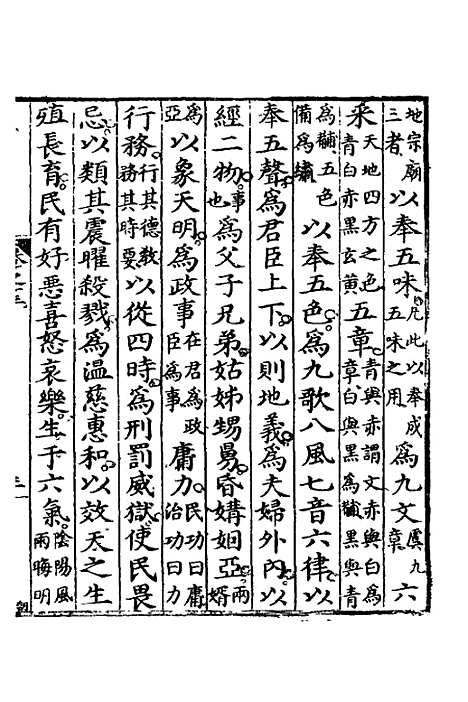 地宗廟三者以奉五味凡此以奉成五味之用為九文虞九章六
采天地四方之色青白赤黑玄黃五章青與赤謂文赤與白為章白與黑為黼黑與青
為黼五色備為繡以奉五色為九歌八風七音六律以
奉五聲為君臣上下以則地義為夫婦外內以
經二物事也為父子兄弟姑姊甥舅昏媾姻亞兩婿
為亞以象天明為政事在君為政臣為事庸力民功曰庸治功曰力
行務行其德教務其時要以從四時為刑罰威獄使民畏
忌以類其震曜殺戮為溫慈惠和以效天之生
殖長育民有好惡喜怒哀樂生于六氣陰陽風雨晦明